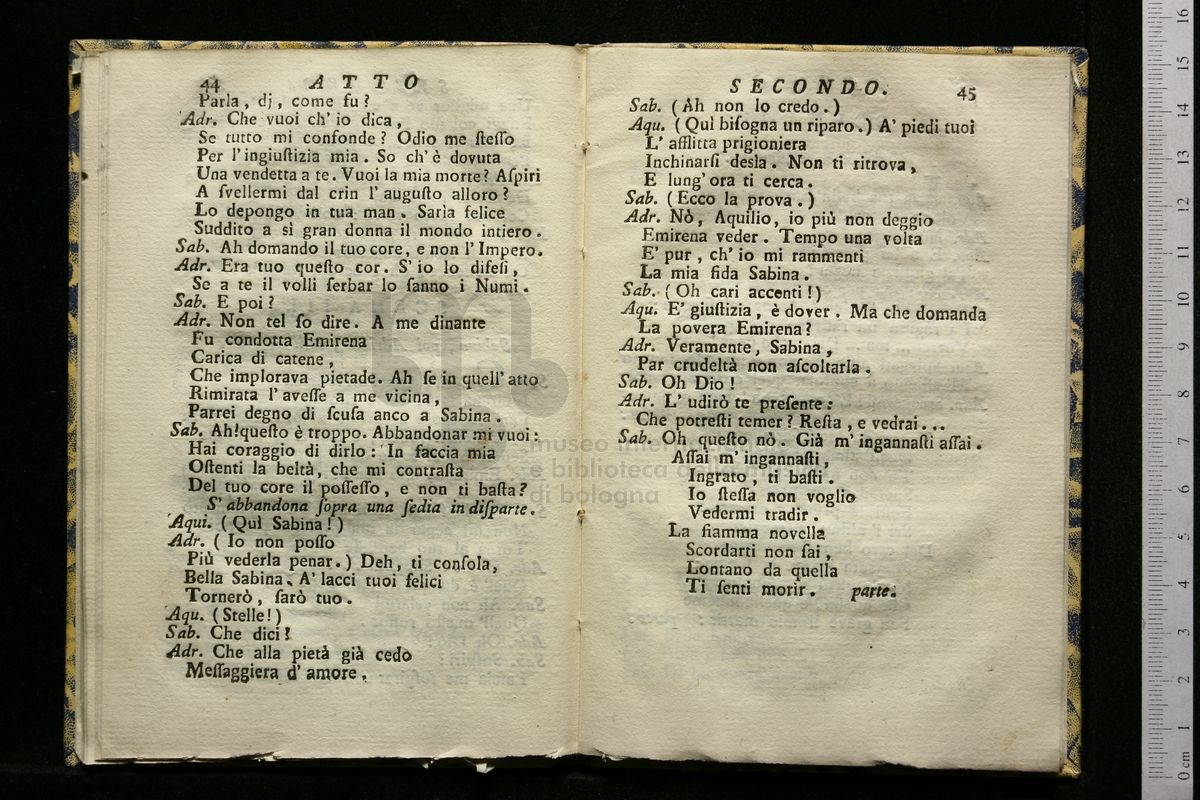 44 ATTO
Parla, dj, come fu?
Adr. Che vuoi ch' io dica,
Se tutto mi confonde? Odio me ſteſſo
Per l' ingiuſtizia mia. So ch' è dovuta
Una vendetta a te. Vuoi la mia morte? Aſpiri
A ſvellermi dal crin l' auguſto alloro?
Lo depongo in tua man. Sarìa felice
Suddito a sì gran donna il mondo intiero.
Sab. Ah domando il tuo core, e non l' Impero.
Adr. Era tuo queſto cor. S' io lo difeſi,
Se a te il volli ſerbar lo ſanno i Numi.
Sab. E poi?
Adr. Non tel ſo dire. A me dinante
Fu condotta Emirena
Carica di catene,
Che implorava pietade. Ah ſe in quell' atto
Rimirata l' aveſſe a me vicina,
Parrei degno di ſcuſa anco a Sabina.
Sab. Ah! queſto è troppo. Abbandonar mi vuoi:
Hai coraggio di dirlo: In faccia mia
Oſtenti la beltà, che mi contraſta
Del tuo core il poſſeſſo, e non ti baſta?
S' abbandona ſopra una ſedia in diſparte.
Aqui. (Quì Sabina!)
Adr. (Io non poſſo
Più vederla penar.) Deh, ti conſola,
Bella Sabina. A' lacci tuoi felici
Tornerò, ſarò tuo.
Aqu. (Stelle!)
Sab. Che dici?
Adr. Che alla pietà già cedo
Meſſaggiera d' amore.
SECONDO. 45
Sab. (Ah non lo credo.)
Aqu. (Quì biſogna un riparo.) A' piedi tuoi
L' afflitta prigioniera
Inchinarſi desìa. Non ti ritrova,
E lung' ora ti cerca.
Sab. (Ecco la prova.)
Adr. Nò, Aquilio, io più non deggio
Emirena veder. Tempo una volta
E' pur, ch' io mi rammenti
La mia fida Sabina.
Sab. (Oh cari accenti!)
Aqu. E' giuſtizia, è dover. Ma che domanda
La povera Emirena?
Adr. Veramente, Sabina,
Par crudeltà non aſcoltarla.
Sab. Oh Dio!
Adr. L' udirò te preſente:
Che potreſti temer? Reſta, e vedrai...
Sab. Oh queſto nò. Già m' ingannaſti aſſai.
Aſſai m' ingannaſti,
Ingrato, ti baſti.
Io ſteſſa non voglio
Vedermi tradir.
La fiamma novella
Scordarti non ſai,
Lontano da quella
Ti ſenti morir. parte.
e biblioteca
di bologna
0 cm 1 2 3 4 5 6 7 8 9 10 11 12 13 14 15 16